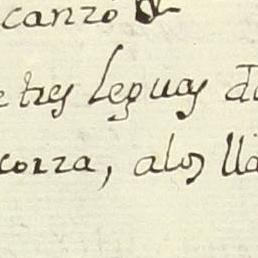 canzó
e tres leguas d
corra, alos lla